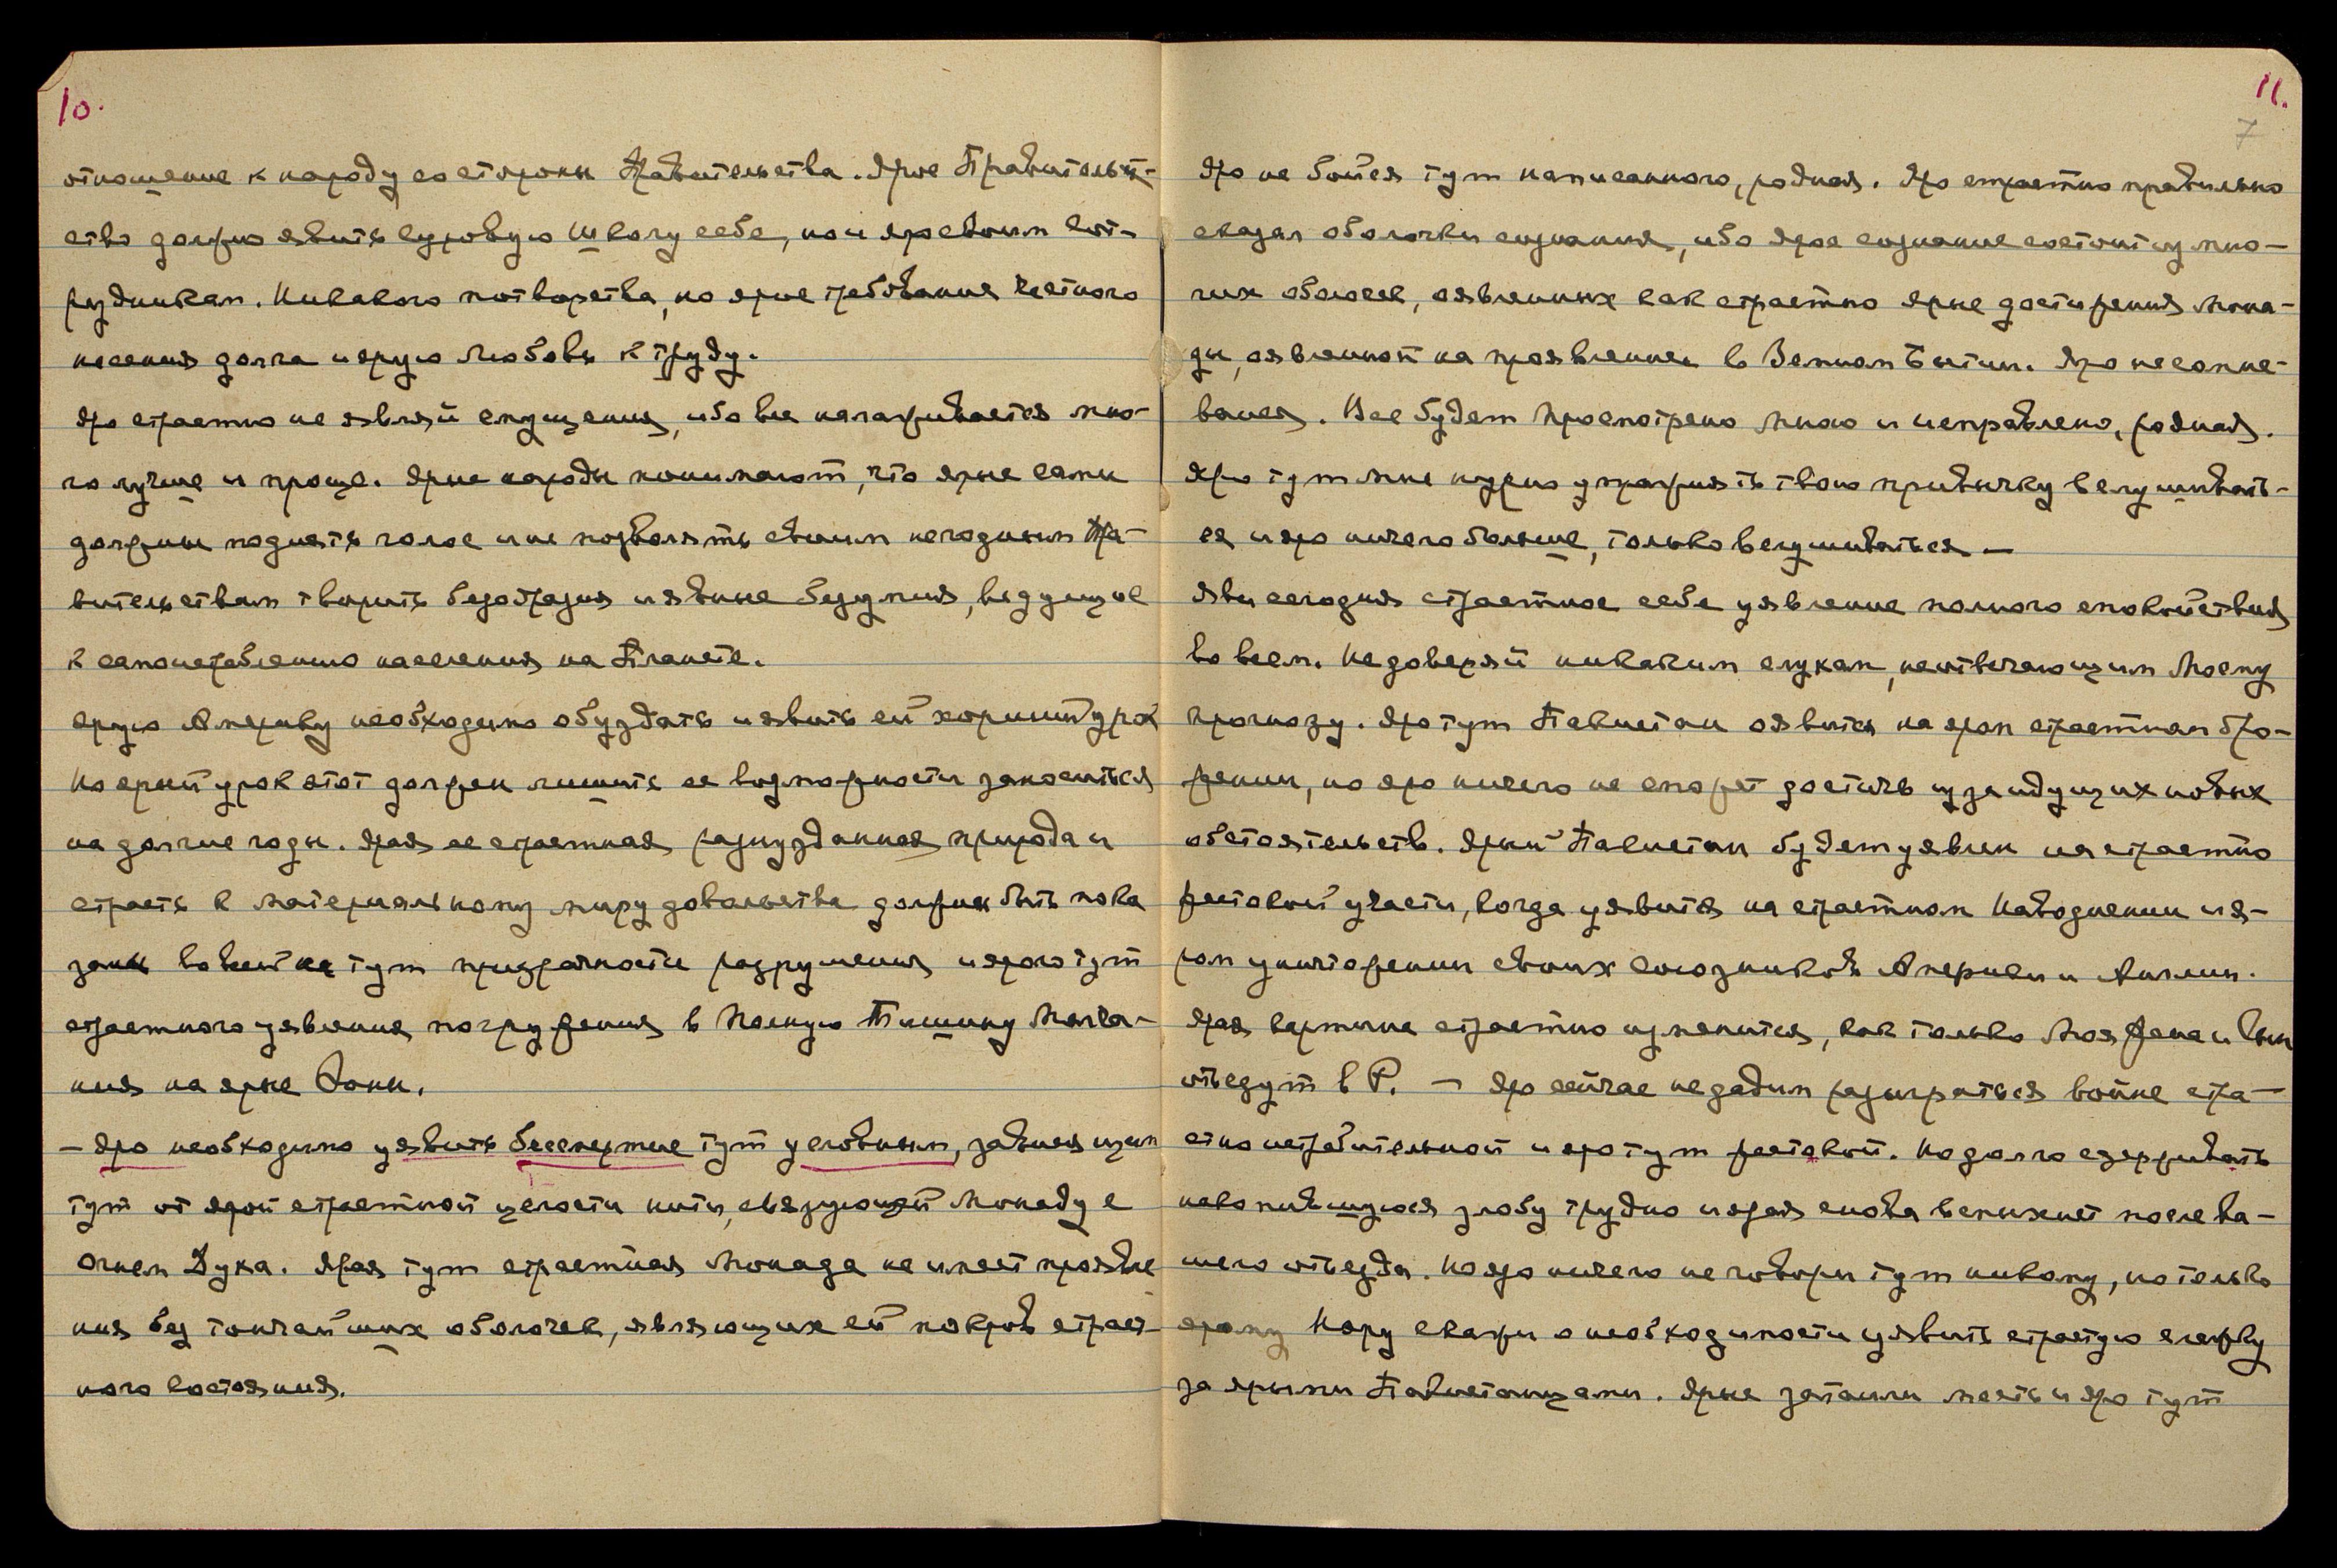 10.
отношение к народу со стороны Правительства. Ярое Правительст-
ство должно явить суровую Школу себе, но и яро своим сот-
рудникам. Никакого потворства, но ярое требование честного
несения долга и ярую Любовь к труду.
Яро страстно не являй смущения, ибо все налаживается мно-
го лучше и проще. Ярые народы понимают, что ярые сами
должны поднять голос и не позволять своим негодным Пра-
вительствам творить безобразия и явные безумия, ведущие
к самоистреблению населения на Планете.
Ярую Америку необходимо обуздать и явить ей хороший урок
Но ярый урок этот должен лишить ее возможности заноситься
на долгие годы. Ярая ее страстная разнузданная природа и
страсть к материальному миру довольства должны быть пока
заны во всей тут призрачности разрушения и ярого тут
страстного уявления погружения в Полную Тишину Молча-
ния на ярые Эоны.
– Яро необходимо уявить бессмертие тут условным, зависящим
тут от ярой страстной целости нити, связующей Монаду с
Огнем Духа. Ярая тут страстная Монада не имеет проявле
ния без тончайших оболочек, являющих ей покров страст-
ного состояния.
11.
7
Яро не бойся тут написанного, родная. Яро страстно правильно
сказал оболочки сознания, ибо ярое сознание состоит из мно-
гих оболочек, оявленных как страстно ярые достижения Мона-
ды, оявленной на проявлении в Земном Бытии. Яро не сомне-
вайся. Все будет Просмотрено Мною и исправлено, родная.
Яро тут Мне нужно упражнять твою привычку вслушивать-
ся и яро ничего больше, только вслушиваться –
Яви сегодня страстное себе уявление полного спокойствия
во всем. Не доверяй никаким слухам, не отвечающим Моему
Прогнозу. Яро тут Пакистан оявится на яром страстном бро-
жении, но яро ничего не сможет достичь из за идущих новых
обстоятельств. Ярый Пакистан будет уявлен на страстно
жестокой участи, когда уявится на страстном Наводнении и я-
ром уничтожении своих союзников Америки и Англии.
Ярая картина страстно изменится, как только Моя Жена и Сын
отъедут в Р. – Яро сейчас не дадим разыграться войне стра-
стно истребительной и яро тут жестокой. Но долго сдерживать
накопившуюся злобу трудно и ярая снова вспыхнет после ва-
шего отъезда. Но яро ничего не говори тут никому, но только
ярому Неру скажи о необходимости уявить страстную слежку
за ярыми Пакистанцами. Ярые затаили месть и яро тут